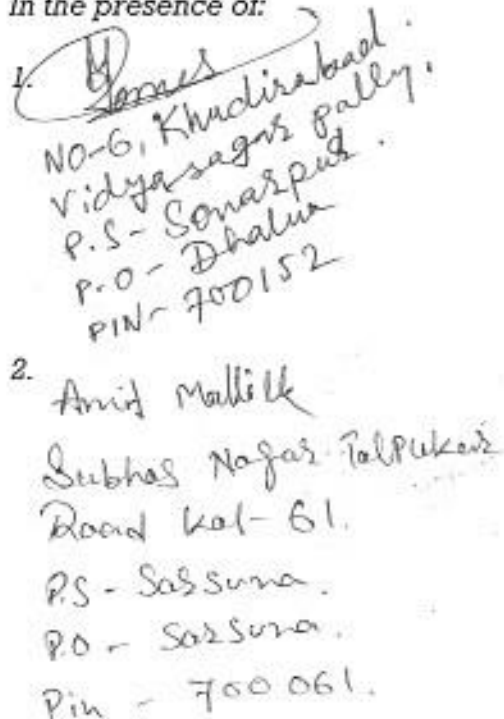 In the presence of:
1.
NO-6, Khudirabad.
Vidyasagar pally,
P.S- Sonarpur.
P.O- Dhalua
PIN- 700152
2.
Amit Mallick
Subhas Nagar Talpukur
Road Kol- 61.
P.S - Sarsuna.
P.O - Sarsuna.
Pin - 700 061.